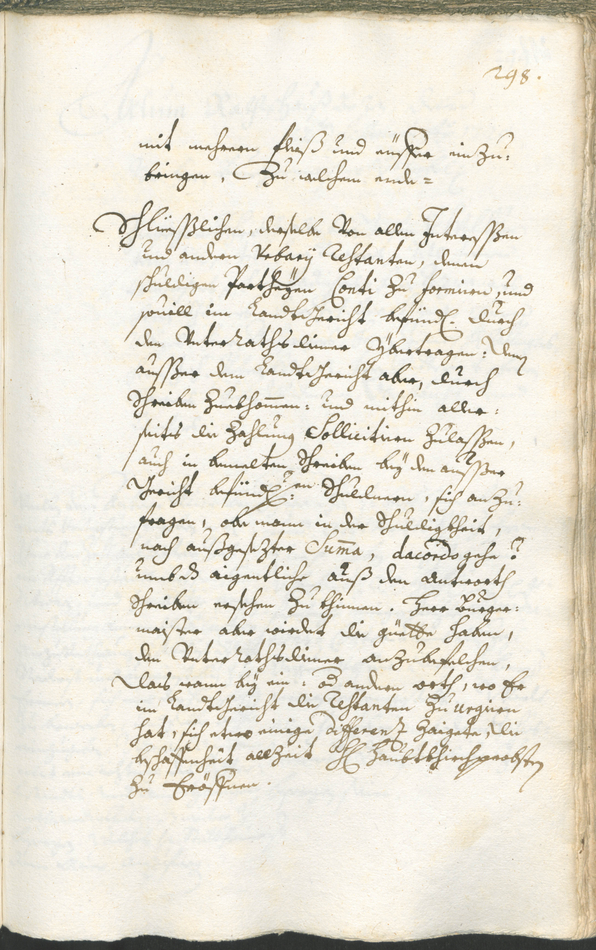 298.
mit mehrern fleiß und eüffer einzu:
bringen, Zu welchem ende =
Schließlichen, derselbe Von allen Interessßen
und andern Urbary Restanten, denen
schuldigen Partheyen Conti zu formiren, und
souill im Landtgericht befündl: durch
den Unterrathsdiener Ybertragen: denen
ausser dem Landtgericht aber, durch
schreiben Zuekhommen: und mithin aller:
seits die Zahlung Sollicitiren zulassßen,
auch in bemelten schreiben bey den ausser
Gericht befündl:en Schuldnern, sich anzu:
fragen, ob mann in der Schuldigkheit,
nach außgesezter Suma, dacordo gehe?
umb es aigentliche auß den Antworth
schreiben ersehen zu khinnen. Herr Burger:
maister aber würdet die güette haben,
den Unterrathsdiener anzubefelchen,
das wann bey ein: od andern orth, wo Er
im Landtgericht die Restanten zu urgirn
hat, sich etwo einige differenz zaigete, die
beschaffenheit allzeit H: Haubtkhirchprobsten
zu eröffnen.